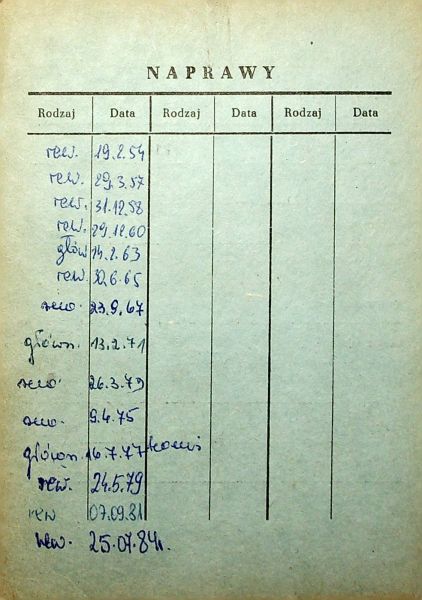 NAPRAWY
Rodzaj Data Rodzaj Data Rodzaj Data
rew. 19.2.54
rew. 29.3.57
rew. 31.12.58
rew. 29.12.60
głów 14.2.63
rew. 30.6.65
rew. 23.9.67
główn. 13.2.71
rew. 26.3.73
rew. 9.4.75
główn. 16.7.77
rew. 24.5.79
rew 07.09.81
rew. 25.07.84r.